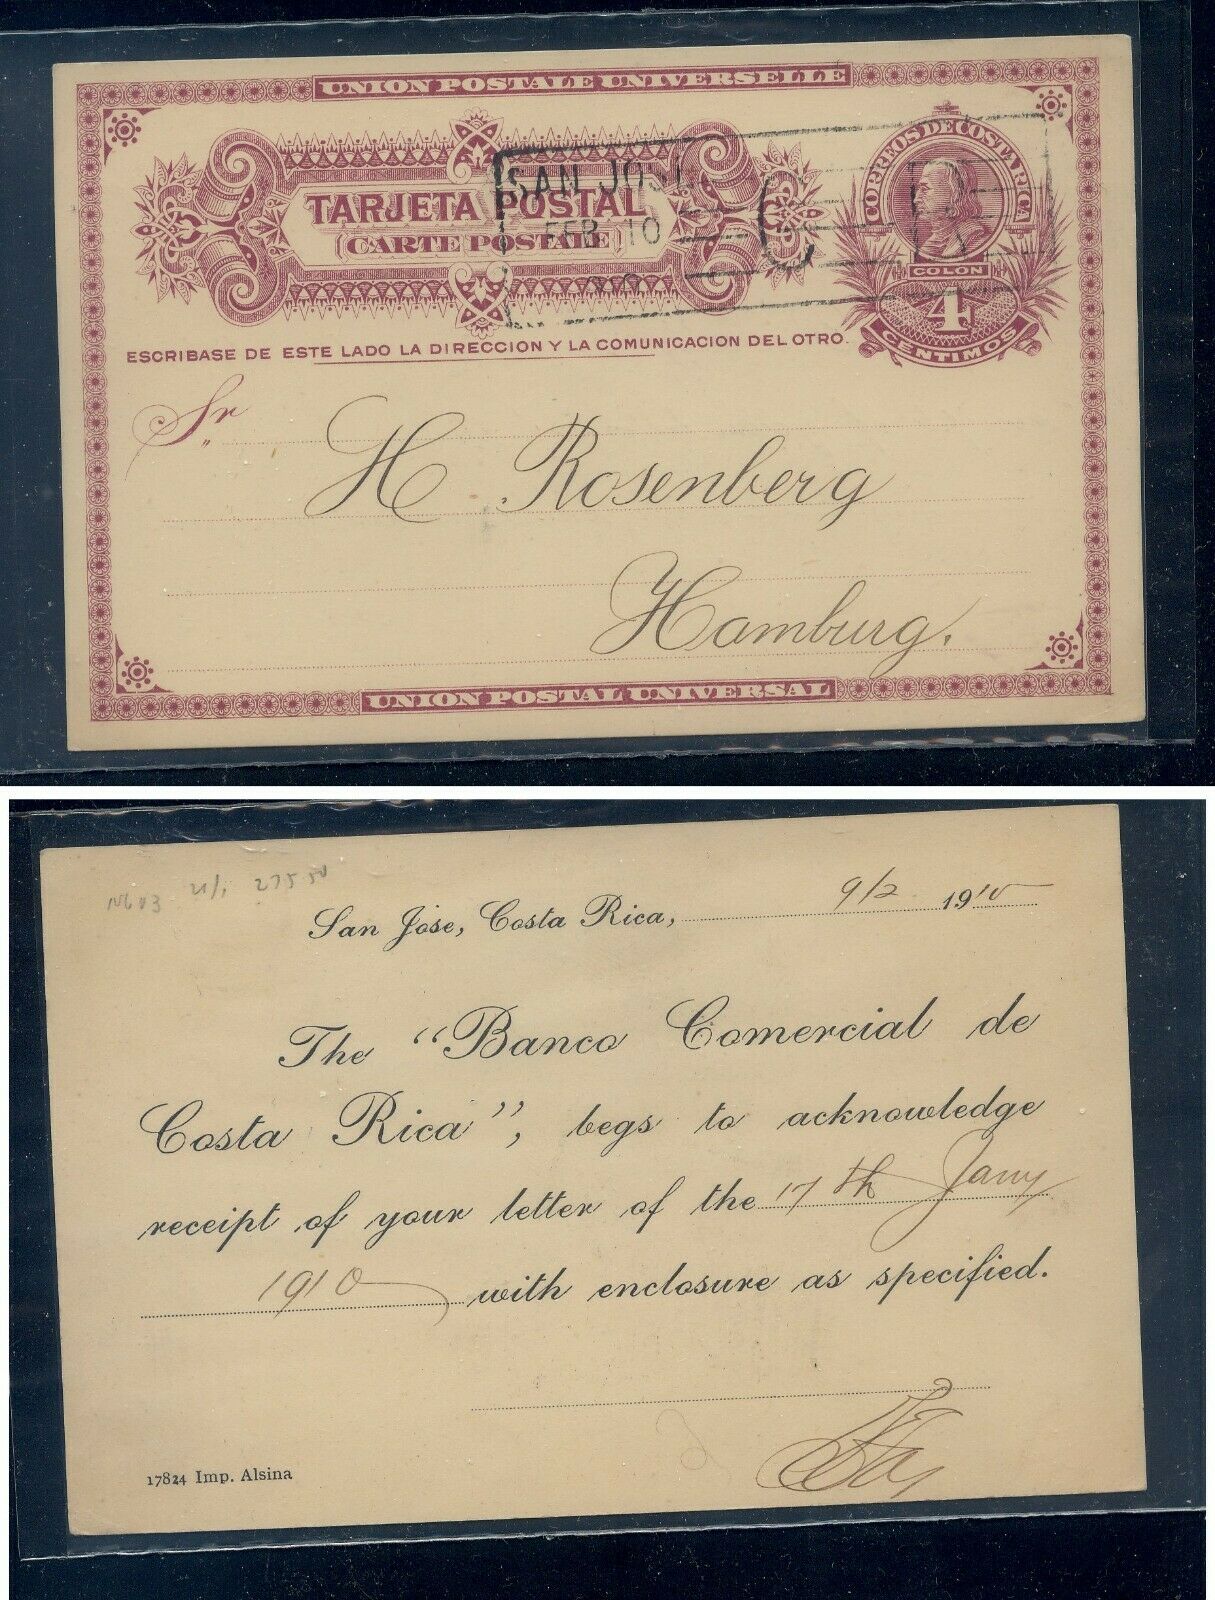 UNION POSTALE UNIVERSELLE
TARJETA POSTAL
(CARTE POSTALE)
SAN JOSE
FEB 10
CORREOS DE COSTA RICA
COLON
4
CENTIMOS
ESCRIBASE DE ESTE LADO LA DIRECCION Y LA COMUNICACION DEL OTRO.
Sr
H. Rosenberg
Hamburg.
UNION POSTAL UNIVERSAL
21/1 275 50
San José, Costa Rica, 9/2 1910
The "Banco Comercial de
Costa Rica", begs to acknowledge
receipt of your letter of the 17th Jany
1910 with enclosure as specified.
17824 Imp. Alsina